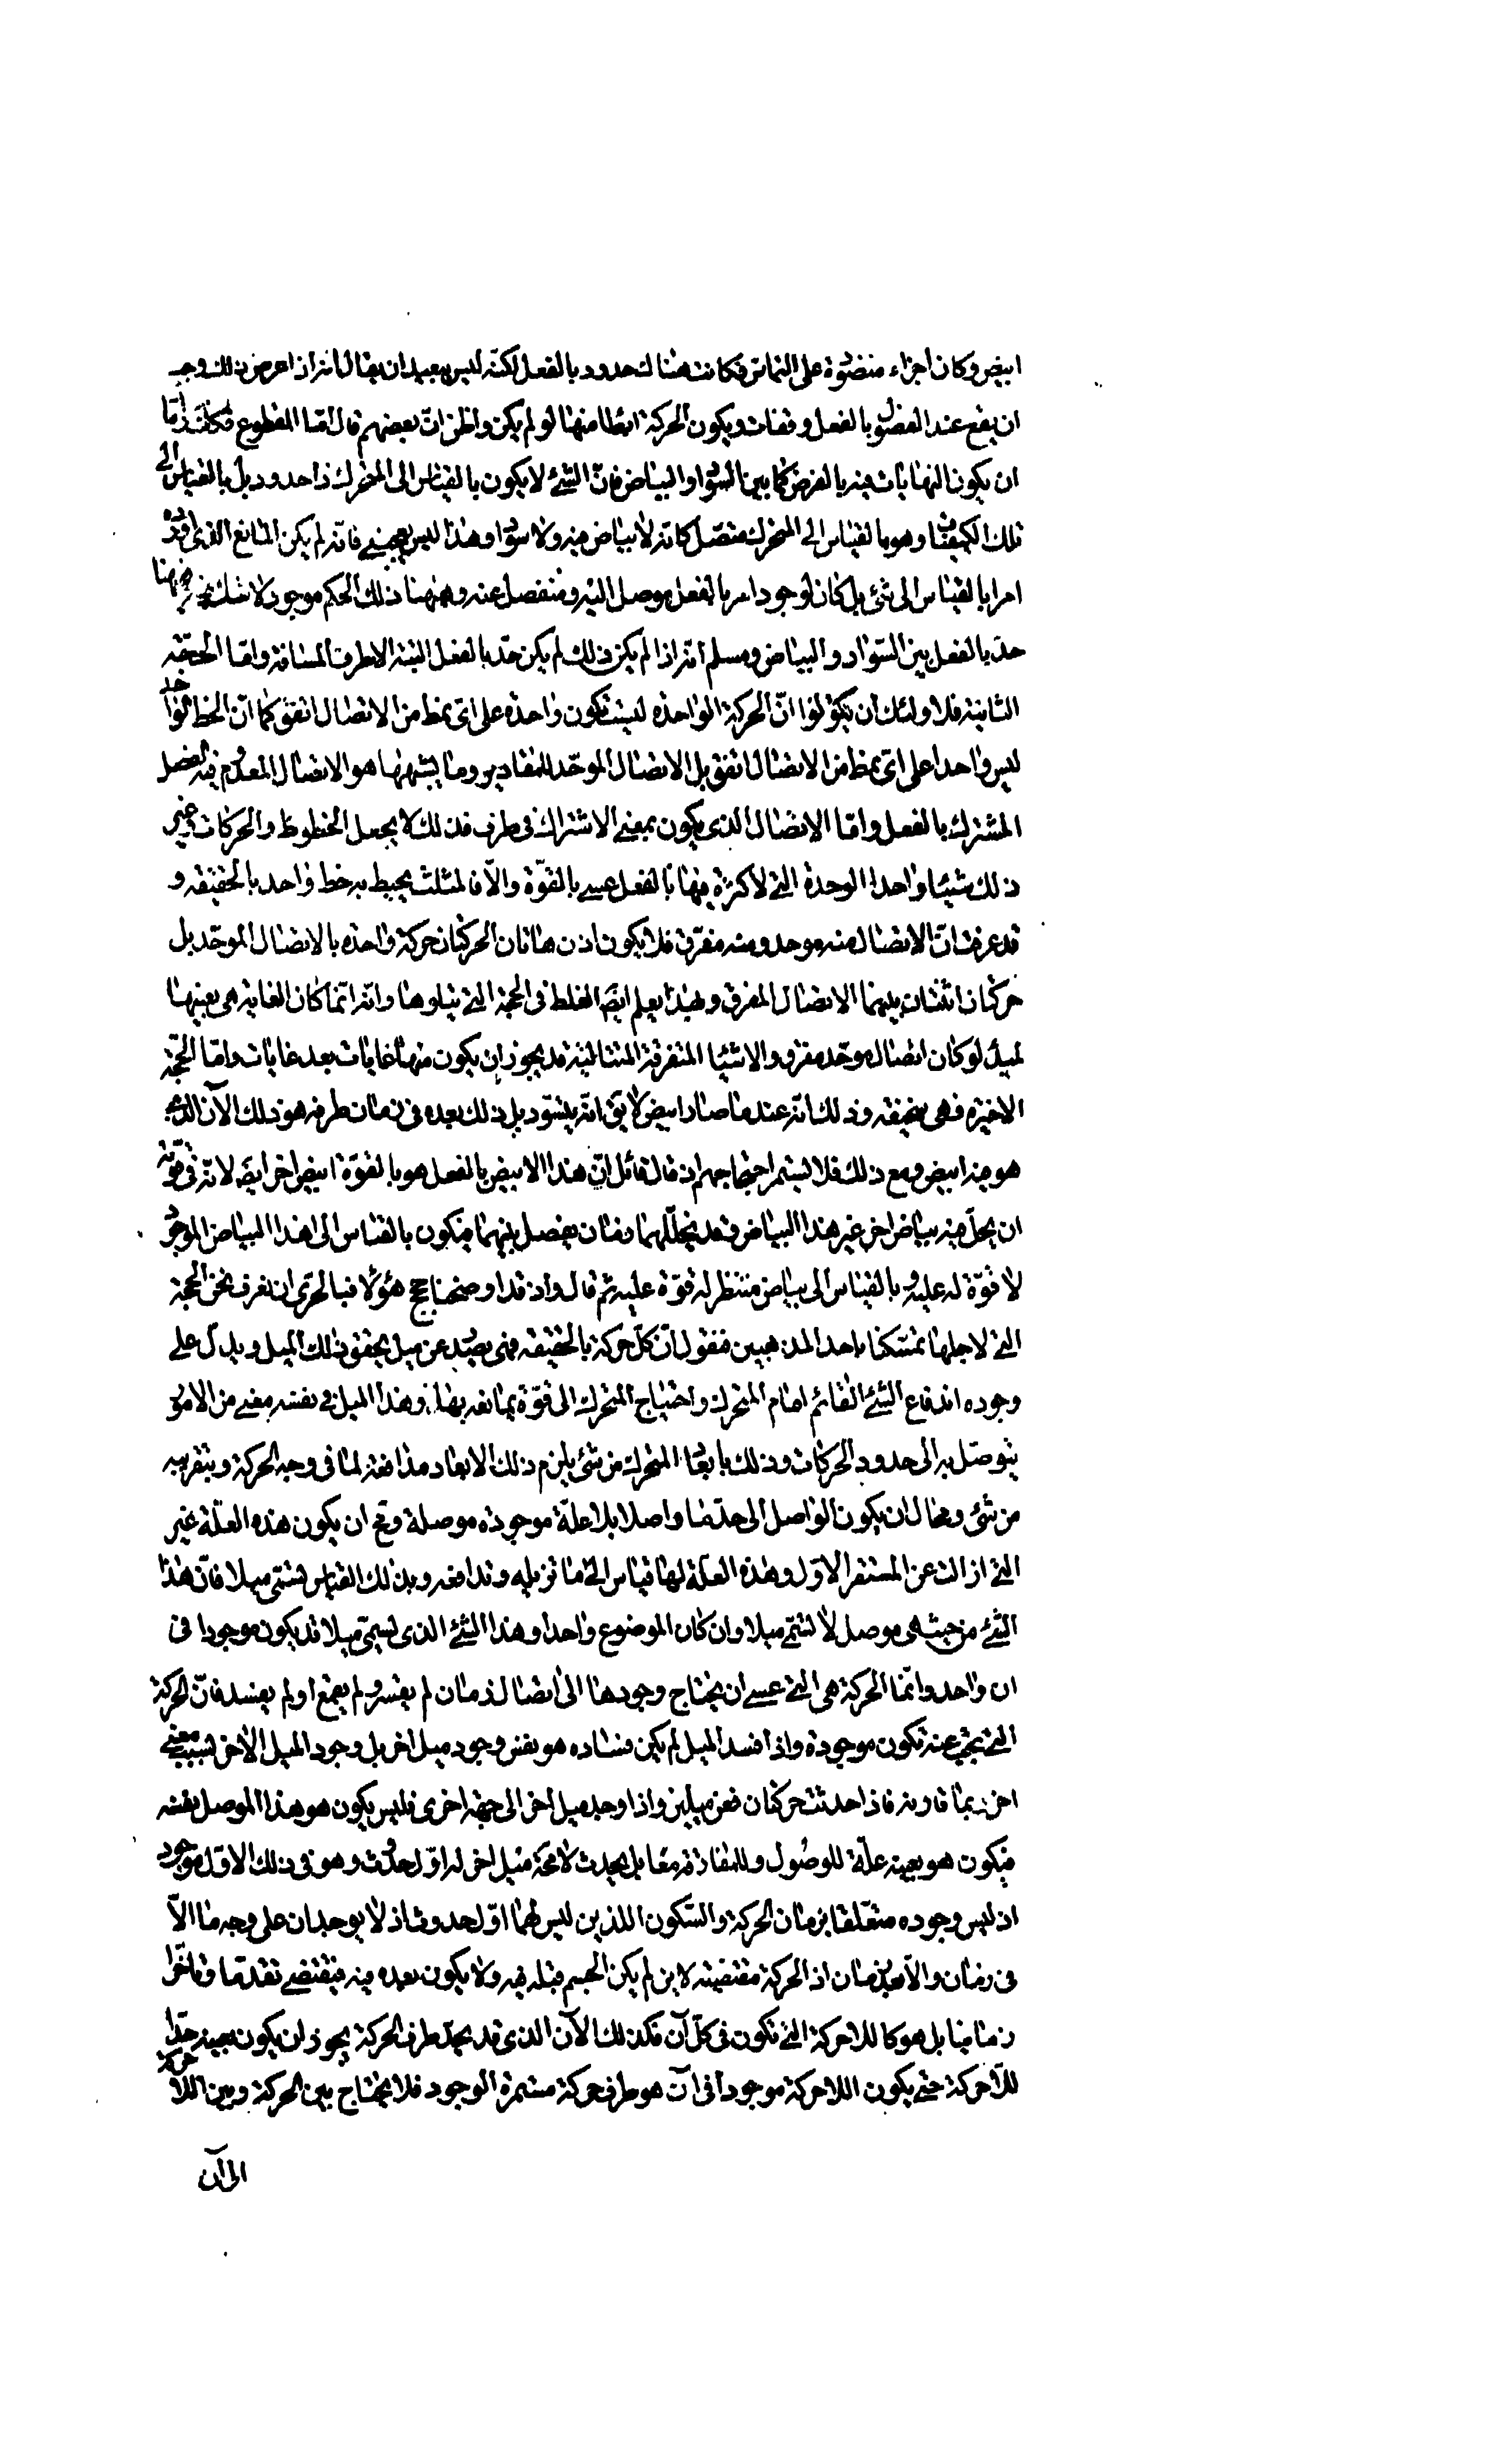 ابيض وكان اجزاء منضودة على التماس فكانت هناك حدود بالفعل لكنّه ليس ببعيد ان يقال انه اذا عرض ذلك وجب
ان يقع عند الفصول بالفعل وقفات ويكون الحركة ابطا منها لو لم يكن واظن ان بعضهم قال امّا المقطوع
ان يكون النهايات فيه بالعرض كما بين السواد والبياض فانّ الشئ لا يكون بالقياس الى المتحرك ذا حدود بل بالقياس الى
تلك الكيفيات وهو بالقياس الى المتحرك متصل كانّه لا بياض فيه ولا سواد وهذا ليس يعجبني فانّه لم يكن المانع الذى
امرا بالقياس الى شئ بل كان لوجود امر بالفعل موصل اليه ومنفصل عنه وههنا ذلك الحكم موجود لا شك فههنا
حد بالفعل بين السّواد والبياض ومسلم انّه اذا لم يكن ذلك لم يكن حد بالفعل البتة الا طرف المسافة وامّا الحجّة
الثانية فلاولئك ان يقولوا انّ الحركة الواحدة ليست تكون واحدة على اىّ نمط من الاتصال اتفق كما انّ الخط الواحد
ليس واحدا على اىّ نمط من الاتصال اتفق بل الاتصال الموحّد للمقادير وما يشبهها هو الاتصال المعدوم فيه الفصل
المشترك بالفعل وامّا الاتصال الذى يكون بمعنى الاشتراك فى طرف فذلك لا يجعل الخطوط والحركات وغير
ذلك شيئا واحدا الوحدة التى لا كثرة فيها بالفعل عسى بالقوّة والّا فالمثلث يحيط به خط واحد بالحقيقه و
قد عرفت انّ الاتصال منه موحد ومنه مفرّق فلا يكون اذن هاتان الحركتان حركة واحدة بالاتصال الموحّد بل
حركتان اثنتان بينهما الاتصال المفرق وبهذا يعلم ايضا الغلط فى الحجة التى يتلوها وانّه انّما كان الغاية هى بعينها
لمبدأ لو كان اتصال موحّد مفرق والاشيا المتفرقة المتتالية قد يجوز ان يكون منها غايات بعد غايات وامّا الحجّة
الاخيرة فهى سخيفة وذلك انّه عندما صار ابيض لا يق انّه يتسّود بل ذلك بعده فى زمان طرفه هو ذلك الآن الذى
هو فيه ابيض ومع ذلك فلا يستمر احتجاجهم اذ قال قائل انّ هذا الابيض بالفعل هو بالقوّة ابيض اخر ايضا لانّه فى قوّته
ان يحلّ فيه بياض اخر غير هذا البياض وقد يتخلّلهما زمان يفصل بينهما فيكون بالقياس الى هذا البياض الموجود
لا قوّة له عليه وبالقياس الى بياض منتظر له قوّة عليه ثم قال واذ قد اوضحنا حجج هؤلاء فبالحرى ان نعرف نحن الحجة
التى لاجلها تمسّكنا باحد المذهبين فنقول انّ كلّ حركة بالحقيقة فهى يصدر عن ميل يحقق ذلك الميل ويدلّ على
وجوده اندفاع الشئ القائم امام المتحرك واحتياج المتحرك الى قوّة يمانعه بها وهذا الميل فى نفسه معنى من الامور
يتوصّل به الى حدود الحركات وذلك بابعاد المتحرك من شئ يلزم ذلك الابعاد مدافعة لما فى وجه الحركة وبتقريبه
من شئ ومحال ان يكون الواصل الى حدّ ما واصلا بلا علّة موجودة موصلة ومحال ان يكون هذه العلّة غير
التى ازالت عن المستقر الاوّل وهذه العلّة لها قياس الى ما تزيله وتدافعه وبذلك القياس تسمّى ميلا فانّ هذا
الشئ من حيث هى موصل لا تسمّى ميلا وان كان الموضوع واحدا وهذا الشئ الذى يسمّى ميلا قد يكون موجودا فى
ان واحد وانّما الحركة هى التى عسى ان يحتاج وجودها الى اتصال زمان لم يقسر ولم يقمع او لم يفسد فانّ الحركة
التى يجب عنه تكون موجودة واذا فسد الميل لم يكن فساده هو نفس وجود ميل اخر بل وجود الميل الاخر
اخر ربما قارنه فاذا حدثت حركتان فعن ميلين واذا وجد ميل اخر الى جهة اخرى فليس يكون هو هذا الموصل نفسه
فيكون هو بعينه علّة للوصول وللمفارقة معا بل يحدث لا محة ميل اخر له اوّل حدوث وهو فى ذلك الاول موجود
اذ ليس وجوده متعلقا بزمان الحركة والسّكون اللذين ليس لهما اوّل حدوث اذ لا يوجدان على وجه ما الّا
فى زمان والّا بعد زمان اذ الحركة مقتضية لاين لم يكن الجسم قبله فيه ولا يكون بعده فيه فيقتضى تقدّما وتاخّرا
زمانيا بل هو كاللاحركة التى تكون فى كلّ آن فكذلك الآن الذى قد يحدّ طرف الحركة يجوز ان يكون بعينه حدّا
للّاحركة حتى يكون اللاحركة موجودا فى آن هو طرف حركة مستمرة الوجود فلا يحتاج بين الحركة وبين اللاحركة
الى آن